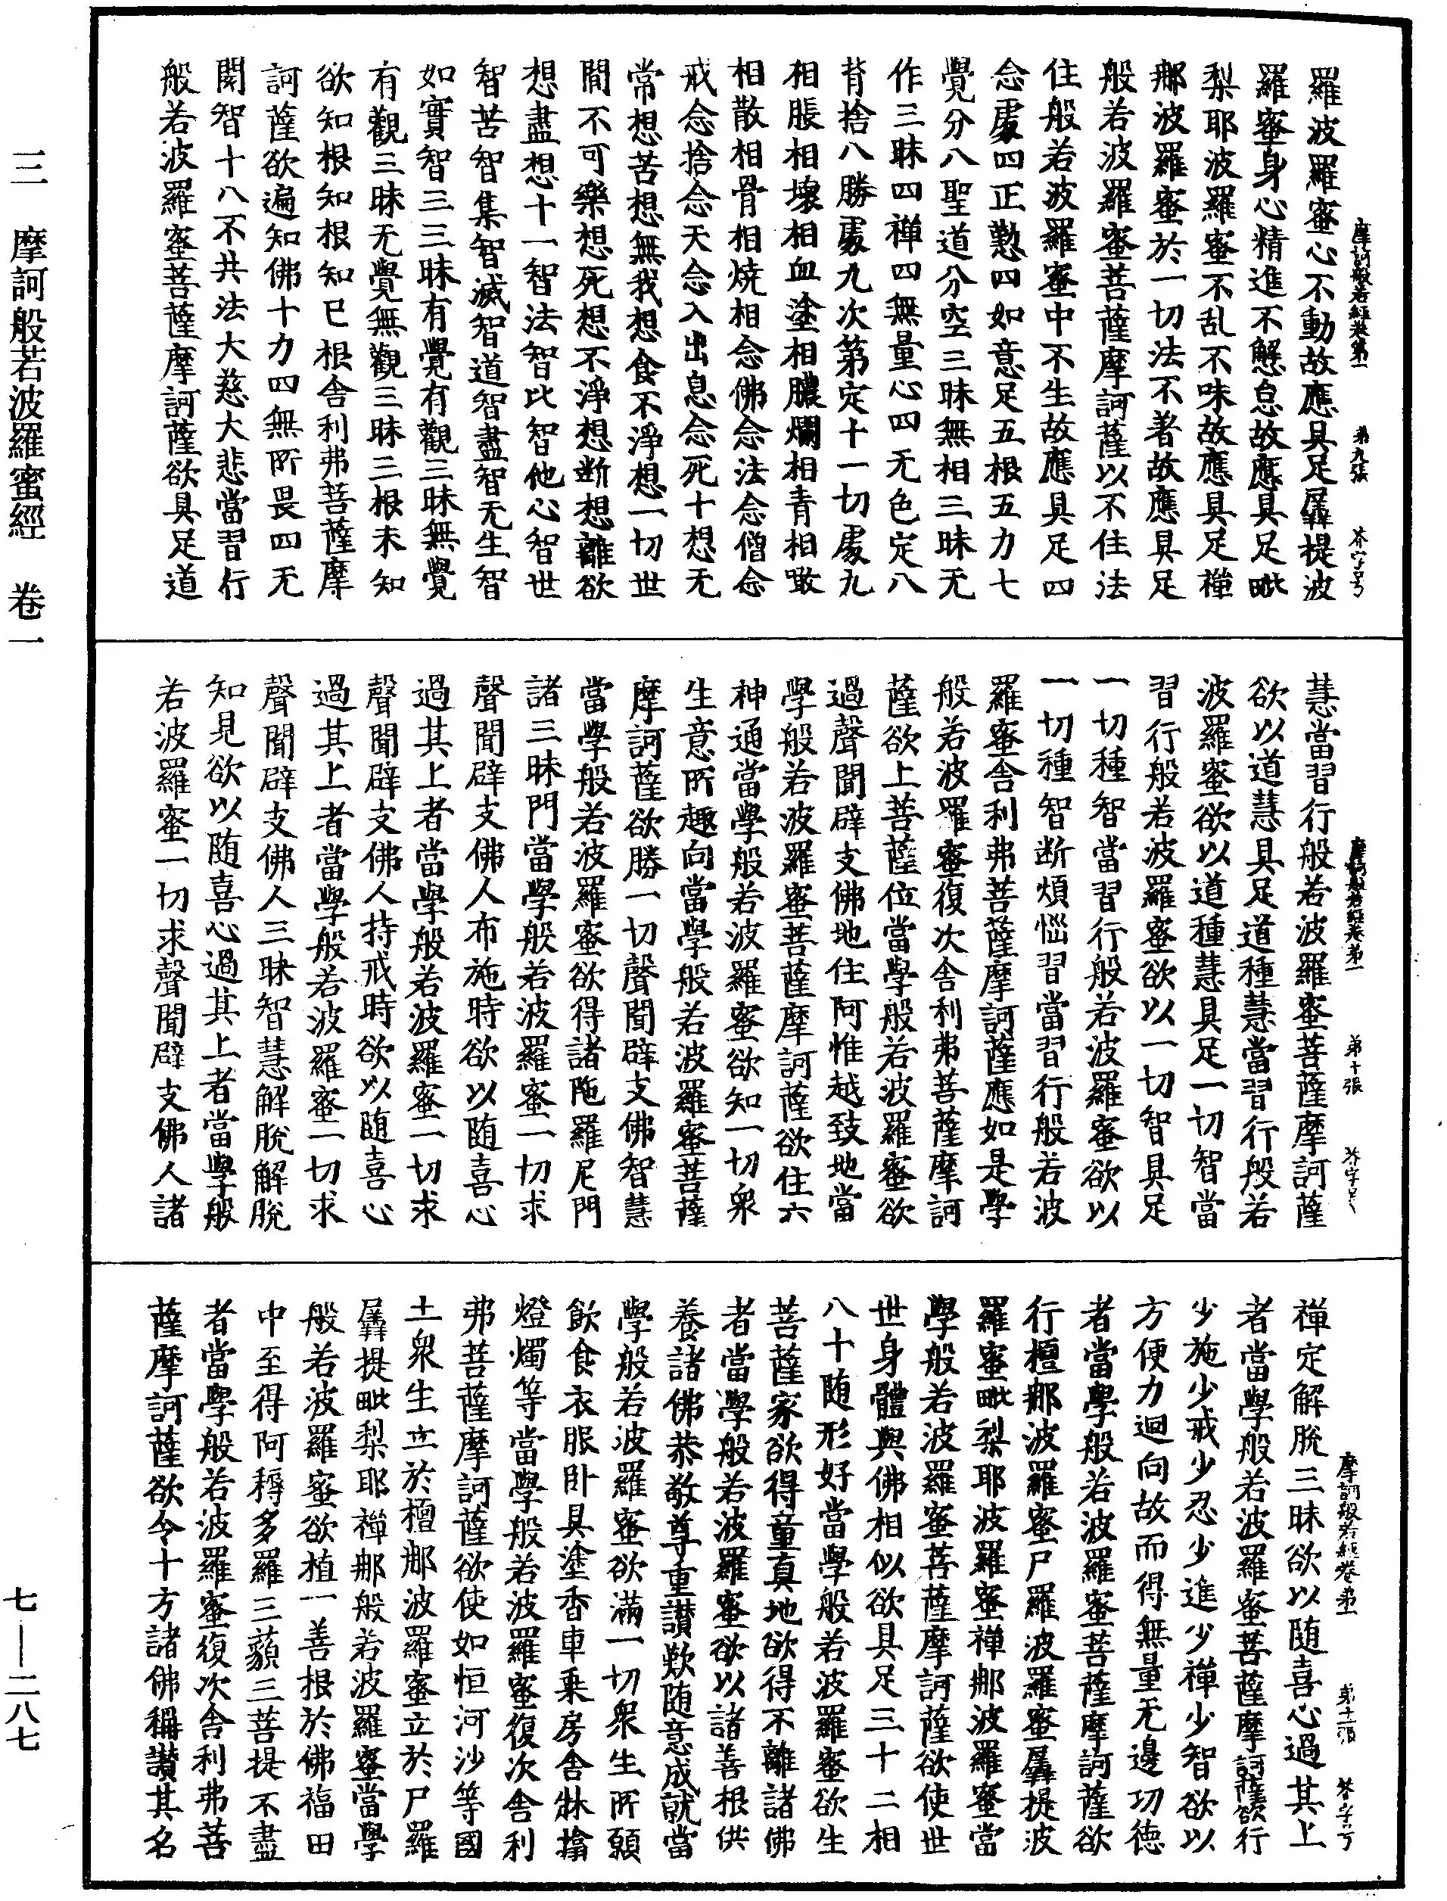 羅波羅蜜心不動故應具足羼提波
羅蜜身心精進不懈怠故應具足毗
梨耶波羅蜜不乱不味故應具足禪
那波羅蜜於一切法不著故應具足
般若波羅蜜菩薩摩訶薩以不住法
住般若波羅蜜中不生故應具足四
念處四正懃四如意足五根五力七
覺分八聖道分空三昧無相三昧无
作三昧四禪四無量心四无色定八
背捨八勝處九次第定十一切處九
相脹相壞相血塗相膿爛相青相噉
相散相骨相燒相念佛念法念僧念
戒念捨念天念入出息念死十想无
常想苦想無我想食不淨想一切世
間不可樂想死想不淨想断想離欲
想盡想十一智法智比智他心智世
智苦智集智滅智道智盡智无生智
如實智三三昧有覺有觀三昧無覺
有觀三昧无覺無觀三昧三根未知
欲知根知根知已根舍利弗菩薩摩
訶薩欲遍知佛十力四無所畏四无
閡智十八不共法大慈大悲當習行
般若波羅蜜菩薩摩訶薩欲具足道
摩訶般若經卷第一 第九張 芥字号
慧當習行般若波羅蜜菩薩摩訶薩
欲以道慧具足道種慧當習行般若
波羅蜜欲以道種慧具足一切智當
習行般若波羅蜜欲以一切智具足
一切種智當習行般若波羅蜜欲以
一切種智断煩惱習當習行般若波
羅蜜舍利弗菩薩摩訶薩應如是學
般若波羅蜜復次舍利弗菩薩摩訶
薩欲上菩薩位當學般若波羅蜜欲
過聲聞辟支佛地住阿惟越致地當
學般若波羅蜜菩薩摩訶薩欲住六
神通當學般若波羅蜜欲知一切衆
生意所趣向當學般若波羅蜜菩薩
摩訶薩欲勝一切聲聞辟支佛智慧
當學般若波羅蜜欲得諸陁羅尼門
諸三昧門當學般若波羅蜜一切求
聲聞辟支佛人布施時欲以随喜心
過其上者當學般若波羅蜜一切求
聲聞辟支佛人持戒時欲以随喜心
過其上者當學般若波羅蜜一切求
聲聞辟支佛人三昧智慧解脫解脫
知見欲以随喜心過其上者當學般
若波羅蜜一切求聲聞辟支佛人諸
摩訶般若經卷第一 第十張 芥字号
禪定解脫三昧欲以随喜心過其上
者當學般若波羅蜜菩薩摩訶薩欲行
少施少戒少忍少進少禪少智欲以
方便力迴向故而得無量无邊功德
者當學般若波羅蜜菩薩摩訶薩欲
行檀那波羅蜜尸羅波羅蜜羼提波
羅蜜毗梨耶波羅蜜禪那波羅蜜當
學般若波羅蜜菩薩摩訶薩欲使世
世身體與佛相似欲具足三十二相
八十随形好當學般若波羅蜜欲生
菩薩家欲得童真地欲得不離諸佛
者當學般若波羅蜜欲以諸善根供
養諸佛恭敬尊重讃歎随意成就當
學般若波羅蜜欲滿一切衆生所願
飲食衣服卧具塗香車乗房舍牀揄
燈燭等當學般若波羅蜜復次舍利
弗菩薩摩訶薩欲使如恒河沙等國
土衆生立於檀那波羅蜜立於尸羅
羼提毗梨耶禪那般若波羅蜜當學
般若波羅蜜欲植一善根於佛福田
中至得阿耨多羅三藐三菩提不盡
者當學般若波羅蜜復次舍利弗菩
薩摩訶薩欲令十方諸佛稱讃其名
摩訶般若經卷第一 第十一張 芥字号
三 摩訶般若波羅蜜經 卷一
七——二八七